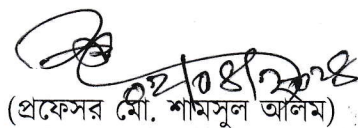 ২২/০৪/২০২৪
(প্রফেসর মো. শামসুল আলিম)